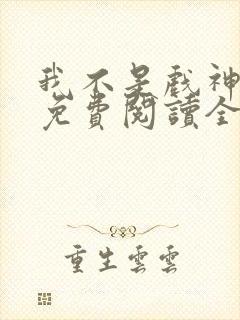 我不是戲神
免費閱讀全
重生雲雲